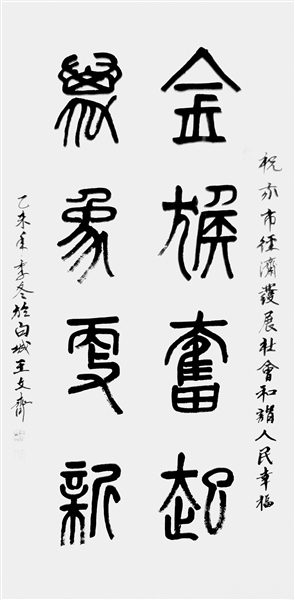 祝市經濟發展社會和諧人民幸福
金猴奮起
萬象更新
乙未年季冬於白城王文齋